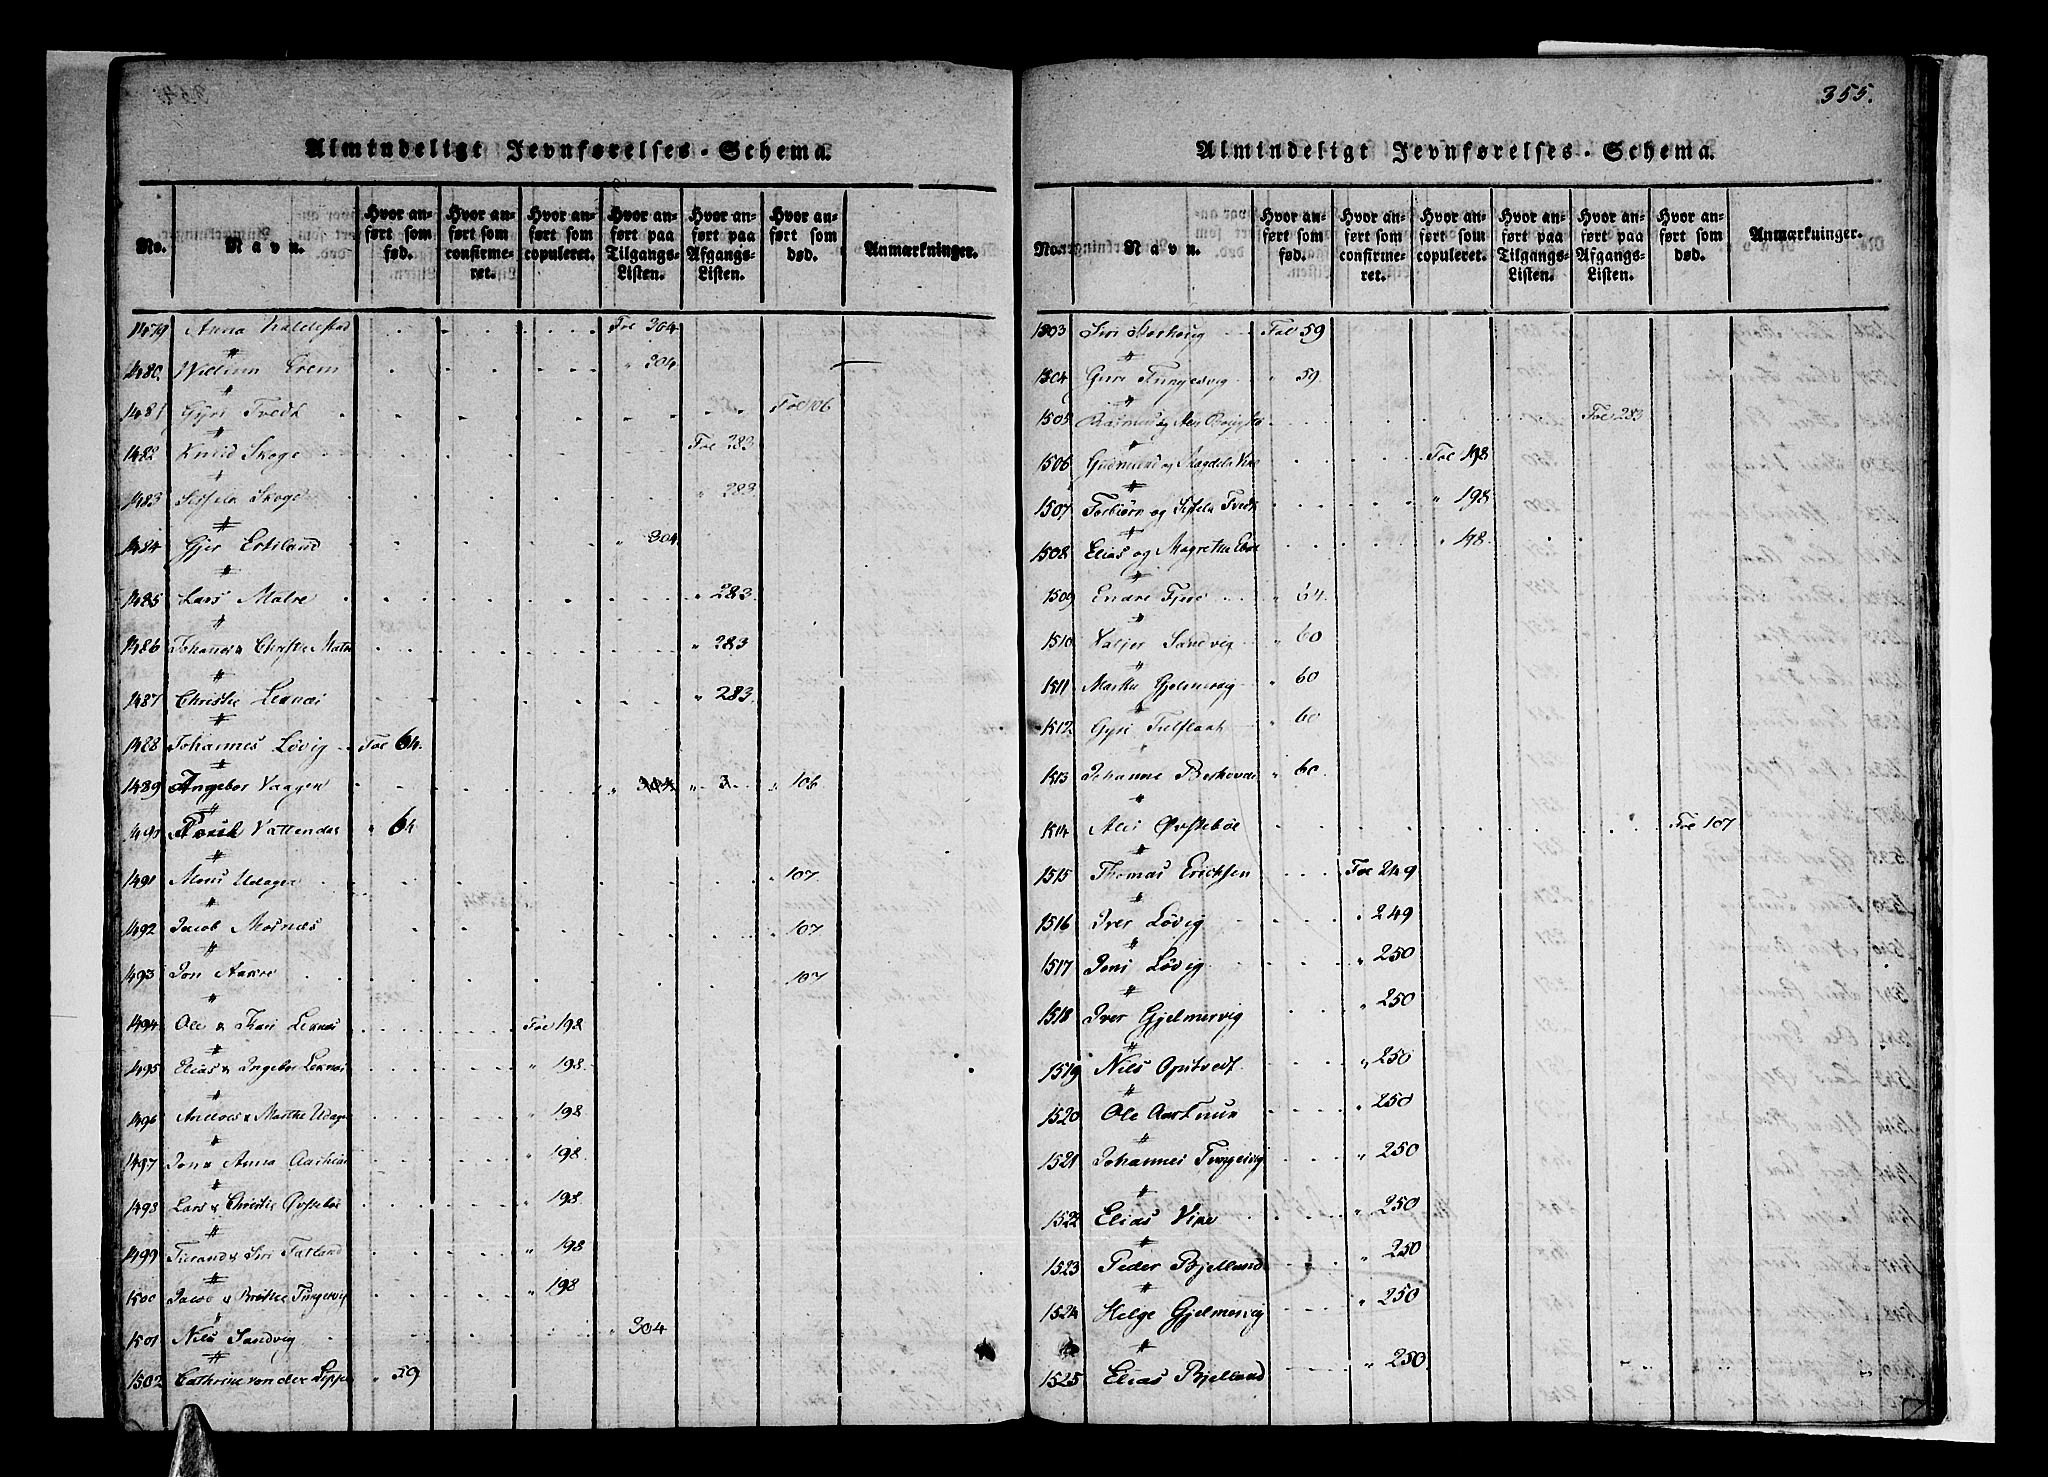 Almindeligt Jevnførelses-Schema.
No. Navn. Hvor anført som fød. Hvor anført som confirmeret. Hvor anført som copuleret. Hvor anført paa Tilgangs-Listen. Hvor anført paa Afgangs-Listen. Hvor anført som død. Anmærkninger.
1479 Anna Haldestad Foe 304
1480. William Erem " 304
1481 Gyri Tvedt Foe 106
1482 Knud Skoge Foe 283
1483 Sissela Skoge " 283
1484 Gjer Eskeland " 304
1485 Lars Matre " 283
1486 Johanes & Christie Matre " 283
1487 Christie Lexnæs " 283
1488 Johannes Løvig Foe 64.
1489 Angebor Vaagen " 304 " 3 " 106
Vattendal " 64
1491 Mons Udager " 107
1492 Jacob Mosnæs " 107
1493 Jon Aakre 107
1494 Ole & Thori Lexnæs Foe 198
1495 Elias & Ingebor Lexnæs " 198
1496 Andres & Marthe Udager " 198
1497 Jon & Anna Aarhuus " 198
1498 Lars & Christie Øvstebøe " 198
1499 & Siri Tatland " 198
1500 Jacob & Brithe Tungesvig " 198
1501 Nils Sandvig " 304
1502 Cathrine von der Lippe " 59
355.
Almindeligt Jevnførelses-Schema.
No. Navn. Hvor anført som fød. Hvor anført som confirmeret. Hvor anført som copuleret. Hvor anført paa Tilgangs-Listen. Hvor anført paa Afgangs-Listen. Hvor anført som død. Anmærkninger.
1503 Siri Foe 59
1504 Guri Tungesvig " 59.
1505 Foe 283
1506 Gudmund og Magdela Vike Foe 198
1507 Torbiørn og Sissela Tvedt " 198
1508 Elias og Magretha " 198.
1509 Endre " 64.
1510 Valjer Sandvig " 60
1511 Martha Gjelmervig " 60
1512 Gyri Tielflaat " 60
1513 Johanne " 60
1514 Alis Øvstebøe Foe 107
1515 Thomas Ericksen Foe 249
1516 Iver Løvig " 249
1517 Jens Løvig " 250
1518 Iver Gjelmervig " 250
1519 Nils Opstvedt " 250
1520 Ole Aartuun " 250
1521 Johannes Tungesvig " 250
1522 Elias Vike " 250
1523 Peder Bjelland " 250
1524 Helge Gjelmervig " 250
1525 Elias Bjelland " 250